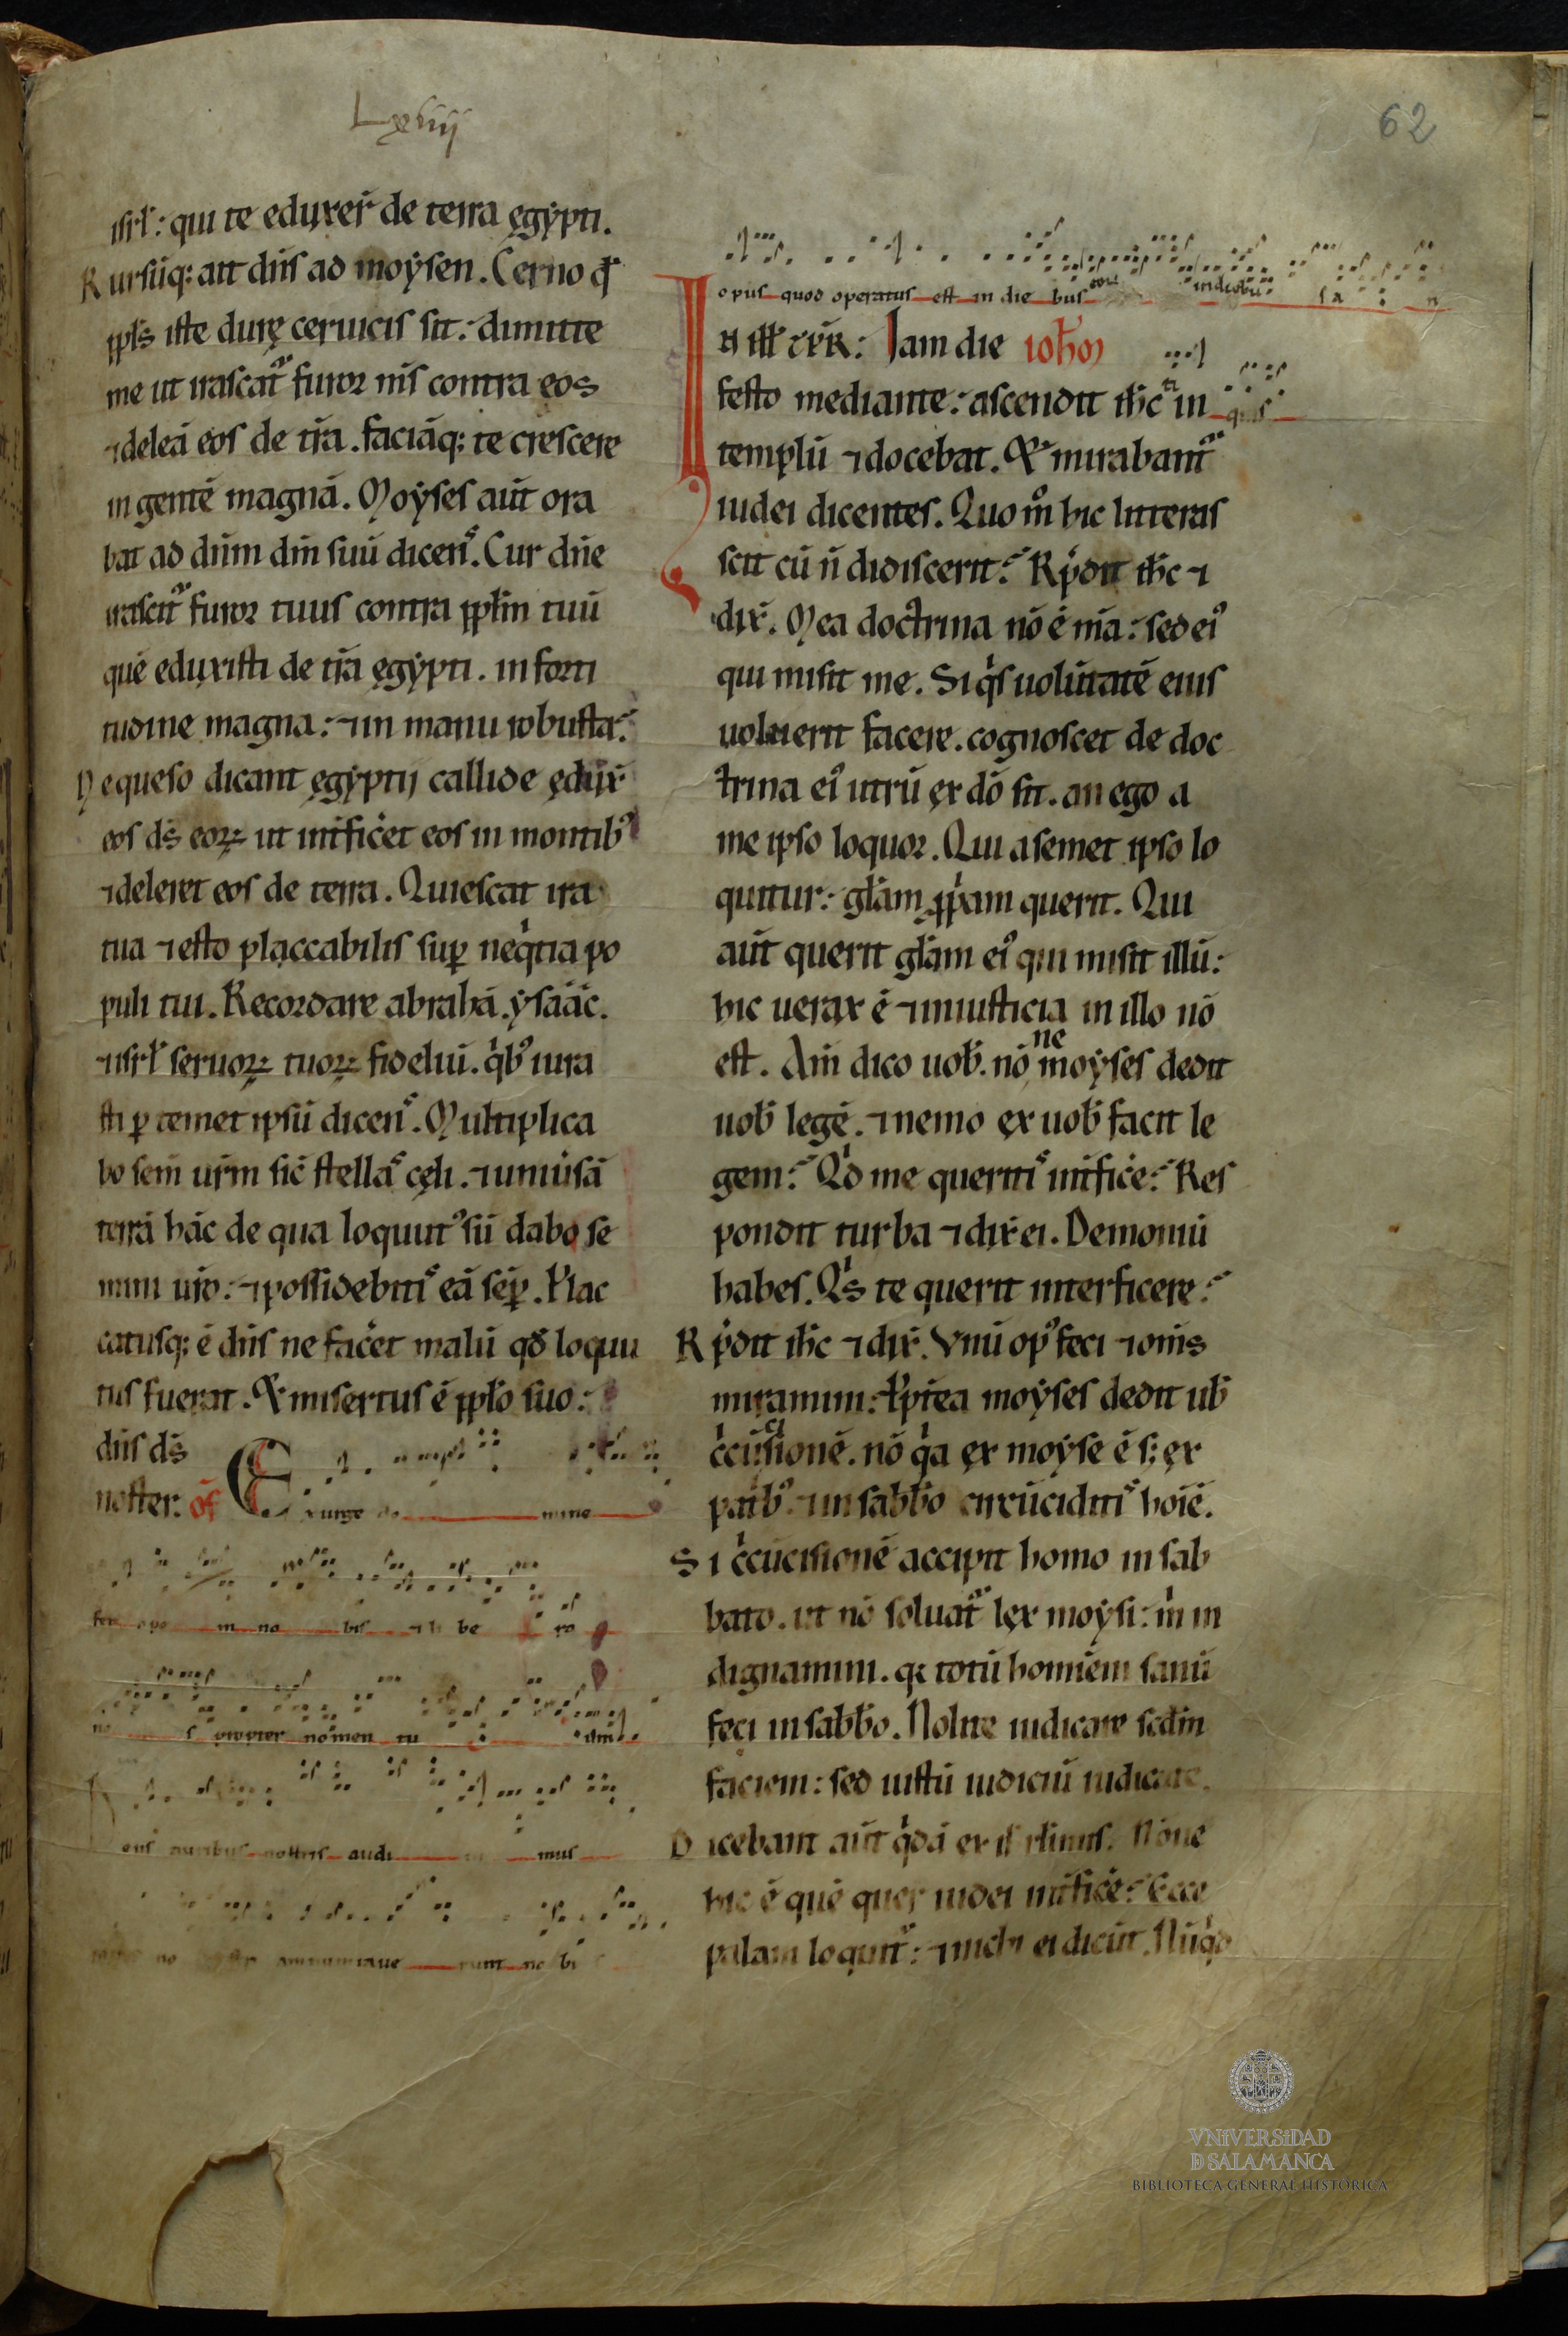 Lxviij
62
isrl̄: qui te eduxer̄ de terra ęgypti.
Rursūq; ait dn̄s ad moysen. Cerno qđ
ppl̄s iste durę ceruicis sit: dimitte
me ut irascat᷑ furor m̄s contra eos
⁊deleā eos de tr̄a. faciāq; te crescere
in gentē magnā. Moyses aūt ora
bat ad dn̄m dm̄ suū dicens. Cur dn̄e
irascit᷑ furor tuus contra ppl̄m tuū
quē eduxisti de tr̄a ęgypti. in forti
tudine magna: ⁊in manu robusta?
Ne queso dicant ęgyptij callide ędux̄
eos ds̄ eoꝝ ut int̄ficēt eos in montibꝰ
⁊deleret eos de terra. Quiescat ira
tua ⁊esto placcabilis suꝑ neqͥtia po
puli tui. Recordare abrahā. ysaāc.
⁊isrl̄ seruoꝝ tuoꝝ fideliū. qͥbꝰ iura
sti ꝑ temet ipsū dicens. Multiplica
bo sem̄ ur̄m sic̄ stellas cęli. ⁊uniūsā
terrā hāc de qua loquutꝰ sū dabo se
mini ur̄o: ⁊possidebitis eā sēꝑ. Plac
catusq; ē dn̄s ne facēt malū qđ loquu
tus fuerat. Et misertus ē ppl̄o suo:
dn̄s ds̄
noster. of̄ Exurge do mine
fer opem no bis ⁊li be ra
no s propter nomen tu um
Deus auribus nostris audi mus
no annuntiaue runt no bi
opus quod operatus est in die bus eorū in diebus a n
In ill̄ tp̄r: Iam die ioħm
festo mediante: ascendit ih̄c in quis
templū ⁊docebat. Et mirabant᷑
iudei dicentes. Quom̊ hic litteras
scit cū n̄ didiscerit? Rn̄dit ih̄c ⁊
dix̄. Mea doctrina nō ē m̄a: sed eiꝰ
qui misit me. Si qͥs uolūtatē eius
uoluerit facere. cognoscet de doc
trina eiꝰ utrū ęx dō sit. an ego a
me ipso loquor. Qui a semet ipso lo
quitur: gl̄am ꝓpͥam querit. Qui
aūt querit gl̄am eiꝰ qui misit illū:
hic uerax ē ⁊iniusticia in illo nō
est. Am̄ dico uob̄. nō ne moyses dedit
uob̄ legē. ⁊nemo ęx uob̄ facit le
gem? Qͥd me queritis int̄ficē? Res
pondit turba ⁊dix̄ ei. Demoniū
habes. Qͥs te querit interficere?
Rn̄dit ih̄c ⁊dix̄. Vnū opꝰ feci ⁊om̄s
miramini: Pp̄t̄ea moyses dedit ub̄
cͥcūcisionē. nō qͥa ęx moyse ē s; ęx
patͥbꝰ. ⁊in sabb̄o circūciditis hoīē.
Si cͥcūcisionē accipit homo in sab
bato. ut nō soluat᷑ lęx moysi: mͥ in
dignamini. qͥ totū hominēm sanū
feci in sabb̄o. Nolite iudicare scd̄m
faciem: sed iustū iudiciū iudicate.
Dicebant aūt qͥdā ex ierl̄imis. Nōne
hic ē quē quer̄ iudei int̄ficē? Ecce
palam loquit᷑: ⁊nichil ei dicūt. Nūqͥd
VNIVERSIDAD
D SALAMANCA
BIBLIOTECA GENERAL HISTÓRICA